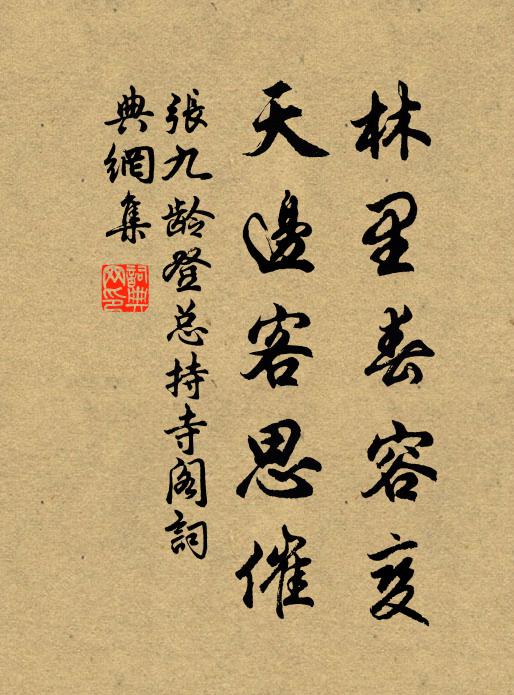 林里春容变
天邊客思催
張九龄登总持寺阁詞
典網集
詞典
网印